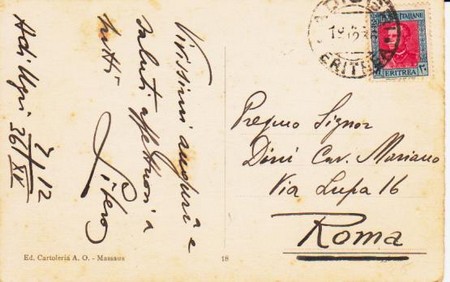 Vivissimi auguri e
saluti affettuosi a
tutti
Piero
Adi Ugri 7/12
36/XV
Ed. Cartoleria A. O. - Massaua
18
POSTE ITALIANE
ERITREA
ERITREA
Pregmo Signor
Dini Cav. Mariano
Via Lupa 16
Roma